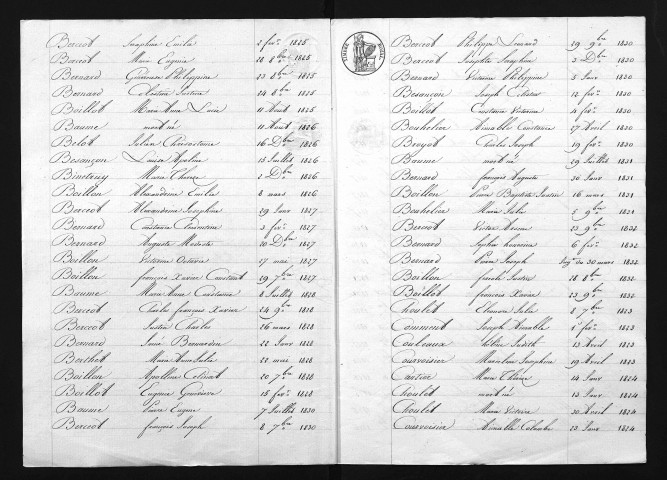 Berçot Séraphine Emilie 2 fer. 1825
Berçot Marie Eugénie 18 9bre 1825
Bernard Philippine 23 8bre 1825
Bernard Célestine 24 8bre 1825
Boillot Marie Anne Lucie 11 Août 1825
Baume mort né 11 Août 1826
Belot Julien 16 Dbre 1826
Besançon Louise Apoline 15 Juillet 1826
Binetruy Marie Thérèse 2 Dbre 1826
Boillon Alexandrine Emilie 8 mars 1826
Berçot Alexandrine Joséphine 29 Janr 1827
Bernard Constance Clémentine 3 fer. 1827
Bernard Auguste Modeste 20 Dbre 1827
Boillon Victorine Octavie 27 mai 1827
Boillon françois Xavier Constant 29 7bre 1827
Baume Marie Anne Constance 8 Juillet 1828
Berçot Charles françois Xavier 24 9bre 1828
Berçot Justin Charles 26 mars 1828
Bernard Bernardin 22 Janr 1828
Berthot Marie Anne Julie 22 mai 1828
Boillon Apolline 20 7bre 1828
Boillot Eugénie Geneviève 15 fer. 1828
Baume Pierre Eugène 7 Juillet 1830
Berçot françois Joseph 8 7bre 1830
TIMBRE ROYAL
Berçot Philippe Léonard 29 9bre 1830
Berçot Joséphte Séraphine 3 Dbre 1830
Bernard Victorine Philippine 5 Janr 1830
Besançon Joseph 12 fer. 1830
Boillot Constance Victorine 4 fer. 1830
Bouhelier Aimable Constance 27 Avril 1830
Broyot Charles Joseph 19 fer. 1830
Baume mort né 29 Juillet 1831
Bernard françois Auguste 30 Janr 1831
Boillon Pierre Baptiste Justin 16 mars 1831
Bouhelier Marie Julie 5 9bre 1831
Berçot Victor 23 9bre 1832
Bernard Sophie 6 fer. 1832
Bernard Pierre Joseph 30 mars 1832
Boillon 18 mars 1832
Boillot françois Xavier 23 9bre 1832
Choulet Eléonore Julie 8 7bre 1823
Comment Joseph Aimable 5 fer. 1823
Couleaux Judith 13 Avril 1823
Courvoisier Marceline Joséphine 19 Avril 1823
Cartier Marie Thérèse 14 Janr 1824
Choulet mort né 13 Janr 1824
Choulet Marie Victoire 30 Avril 1824
Courvoisier Aimable Colombe 23 Janr 1824